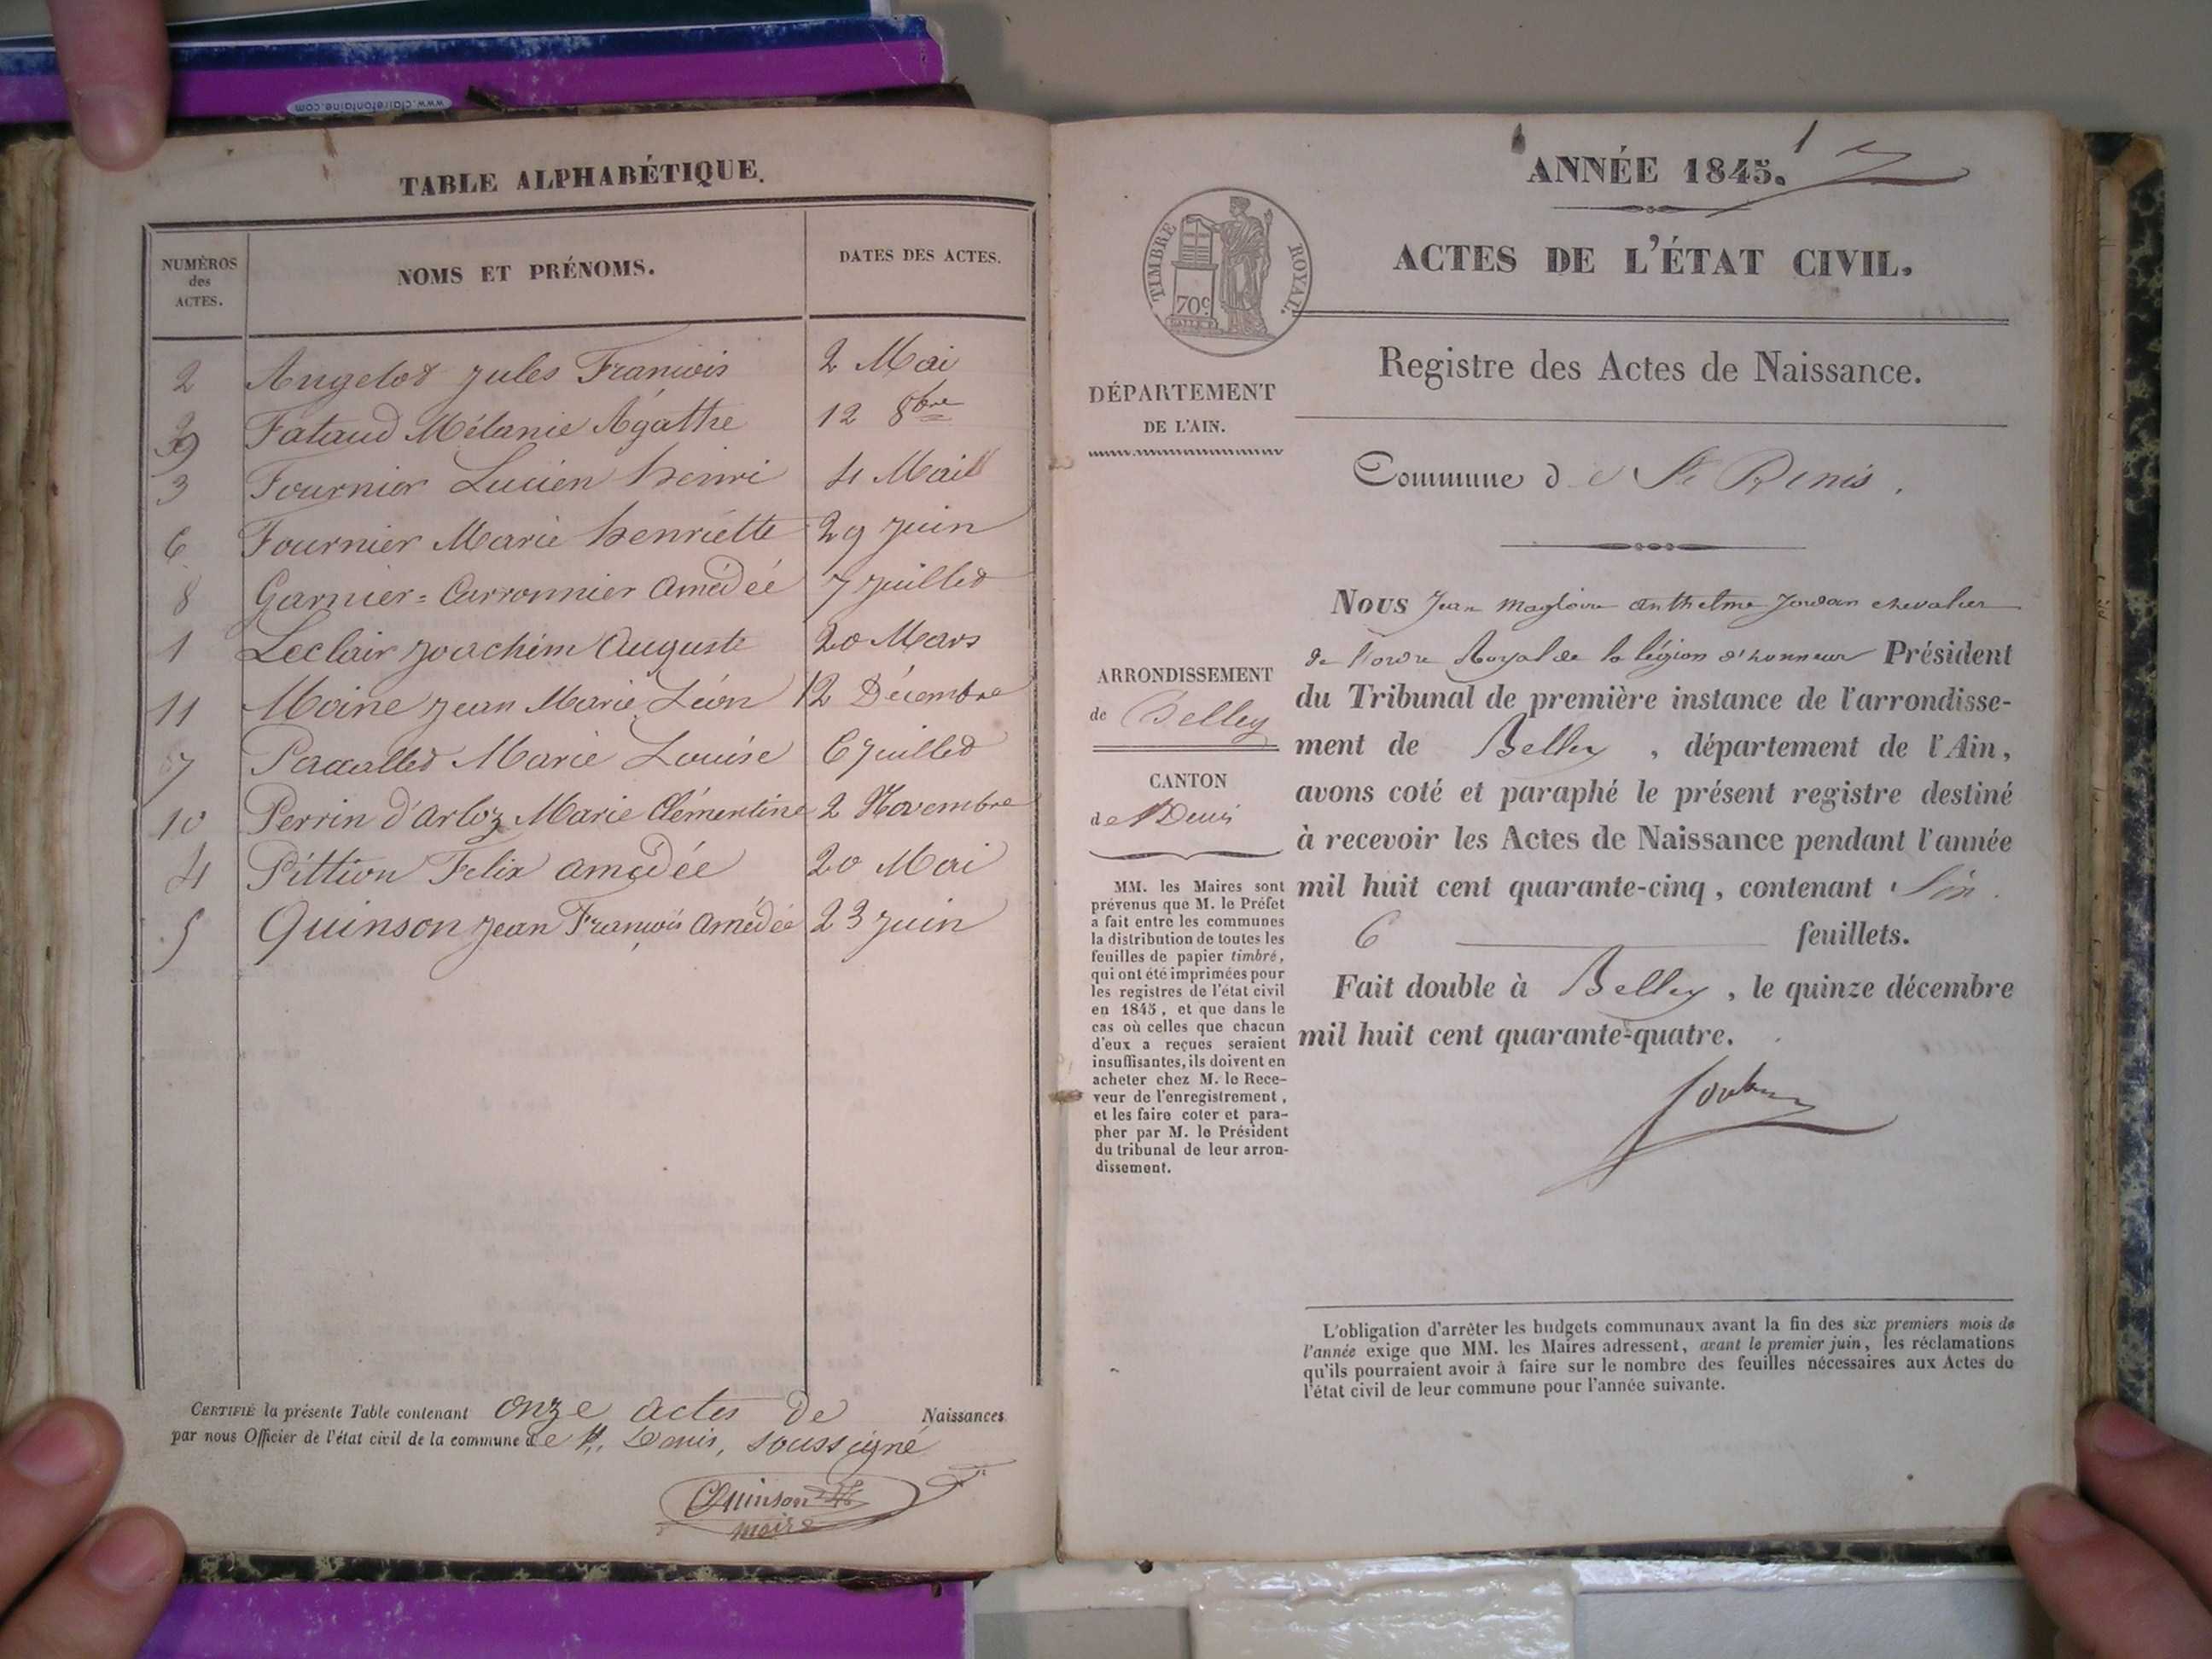 www.clairefontaine.com
TABLE ALPHABÉTIQUE.
NUMÈROS des ACTES.
NOMS ET PRÉNOMS.
DATES DES ACTES.
2 Angelot Jules François 2 Mai
9 Fataud Mélanie Agathe 12 8bre
3 Fournier Lucien henri 4 Mai
6 Fournier Marie henriette 29 juin
8 Garnier=Carronnier Amédée 7 juillet
1 Leclair Joachim Auguste 20 Mars
11 Moine Jean Marie Léon 12 Décembre
7 Marie Louise 6 juillet
10 Perrin d'arloz Marie Clémentine 2 Novembre
4 Pittion Felix amédée 20 Mai
5 Quinson Jean François amédée 23 juin
CERTIFIÉ la présente Table contenant onze actes de Naissances
par nous Officier de l'état civil de la commune de St. Denis, soussigné
Quinson
maire
1
ANNÉE 1845.
TIMBRE ROYAL.
70c
ACTES DE L'ÉTAT CIVIL.
Registre des Actes de Naissance.
DÉPARTEMENT
DE L'AIN.
Commune de St Denis.
ARRONDISSEMENT
de Belley
CANTON
de St Denis
MM. les Maires sont
prévenus que M. le Préfet
a fait entre les communes
la distribution de toutes les
feuilles de papier timbré,
qui ont été imprimées pour
les registres de l'état civil
en 1845, et que dans le
cas où celles que chacun
d'eux a reçues seraient
insuffisantes, ils doivent en
acheter chez M. le Rece-
veur de l'enregistrement,
et les faire coter et para-
pher par M. le Président
du tribunal de leur arron-
dissement.
Nous Jean Magloire anthelme Jordan chevalier
de l'ordre Royal de la légion d'honneur Président
du Tribunal de première instance de l'arrondisse-
ment de Belley, département de l'Ain,
avons coté et paraphé le présent registre destiné
à recevoir les Actes de Naissance pendant l'année
mil huit cent quarante-cinq, contenant Six
6 feuillets.
Fait double à Belley, le quinze décembre
mil huit cent quarante-quatre.
Jordan
L'obligation d'arrêter les budgets communaux avant la fin des six premiers mois de
l'année exige que MM. les Maires adressent, avant le premier juin, les réclamations
qu'ils pourraient avoir à faire sur le nombre des feuilles nécessaires aux Actes de
l'état civil de leur commune pour l'année suivante.